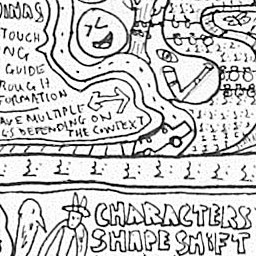 TOUCH
NG
GUIDE
ROUGH
FORMATION
AVE MULTIPLE
GS DEPENDING ON
THE CONTEXT
CHARACTERS
SHAPE SHIFT